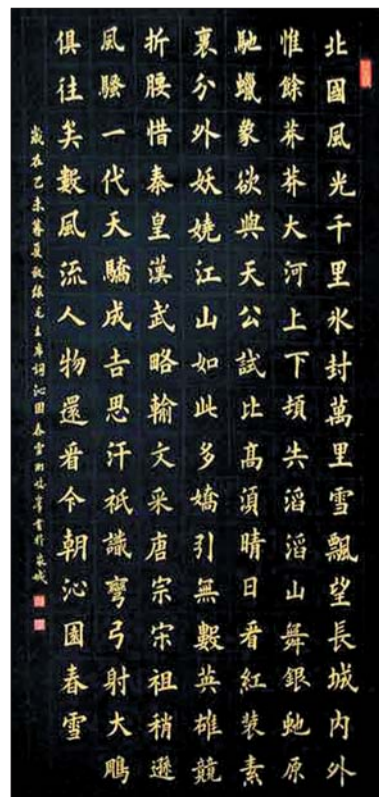 北國風光千里氷封萬里雪飄望長城內外
惟餘莽莽大河上下頓失滔滔山舞銀虵原
馳蠟象欲與天公試比髙須晴日看紅裝素
裹分外妖嬈江山如此多嬌引無數英雄競
折腰惜秦皇漢武略輸文采唐宗宋祖稍遜
風騷一代天驕成吉思汗祇識彎弓射大鵰
俱往矣數風流人物還看今朝沁園春雪
歲在乙未暮夏敬錄毛主席詞沁園春雪書於城